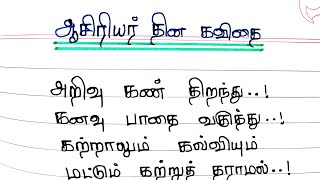 ஆசிரியர் தின கவிதை
அறிவு கண் திறந்து..!
கனவு பாதை வகுத்து..!
கற்றாலும் கல்வியும்
மட்டும் கற்றுத் தராமல்..!